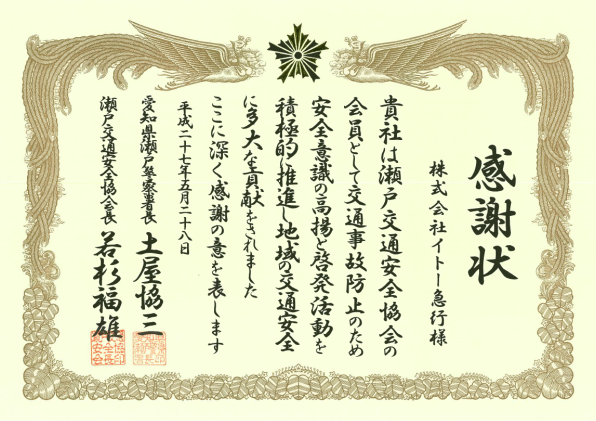 感謝状
株式会社イトー急行様
貴社は瀬戸交通安全協会の
会員として交通事故防止のため
安全意識の高揚と啓発活動を
積極的に推進し地域の交通安全
に多大な貢献をされました
ここに深く感謝の意を表します
平成二十七年五月二十八日
愛知県瀬戸警察署長 土屋協三
瀬戸交通安全協会長 若杉福雄